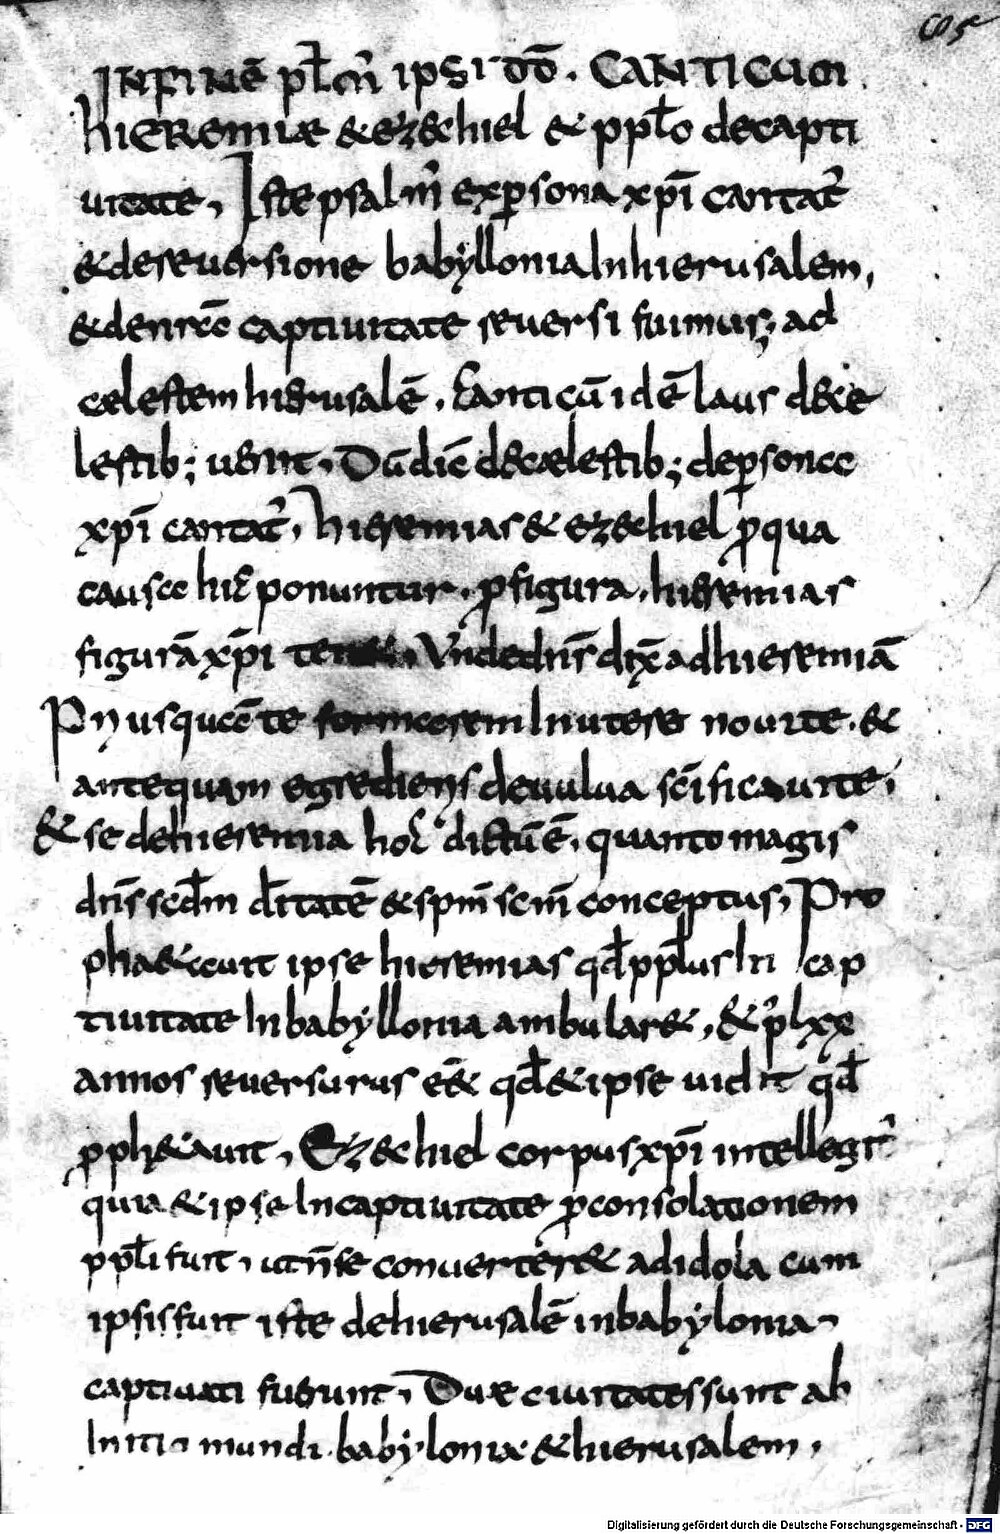 INFINĒ pſl̄m̄ ipsi dō. CANTICUM
HIEREMIAE & ezechiel & ppl̄o decapti
uitate, Iste psalm̄ exꝑsona xp̄i cantat̄
& dereuersione babyllonia In hierusalem,
& de nr̄a captiuitate reuersi fuimus; ad
cælestem hierusalē. Canticū idē laus dece
lestib; uenit, Dū dic̄ decælestib; deꝑsona
xp̄i cantat̄, hieremias & ezechiel ꝓqua
causa hic ponuntur. ꝓfigura. hieremias
figurā xp̄i ten&, Vnde dn̄s dix̄ adhieremiā
Priusquā te formarem In utere noui te. &
antequam egrediens deuulua sc̄ificaui te,
& se dehieremia hoc dictū ē. quanto magis
dn̄s scd̄m d̄itatē & sp̄m sc̄m conceptus, Pro
pha&auit ipse hieremias qd̄ ppl̄us In cap
tiuitate In babyllonia ambular&, & p̄ lxx
annos reuersurus e&̄ qd̄ & ipse uidit qd̄
ꝓph&auit, Ezechiel corpus xp̄i intellegit̄
quia & ipse In captiuitate ꝓconsolationem
ppl̄i fuit, ut n̄ se conuerter& ad idola cum
ipsis fuit iste dehierusalē in babylonia
captiuati fuerunt, Duæ ciuitates sunt ab
Initi mundi babyloniæ & hierusalem,
Digitalisierung gefördert durch die Deutsche Forschungsgemeinschaft - DFG